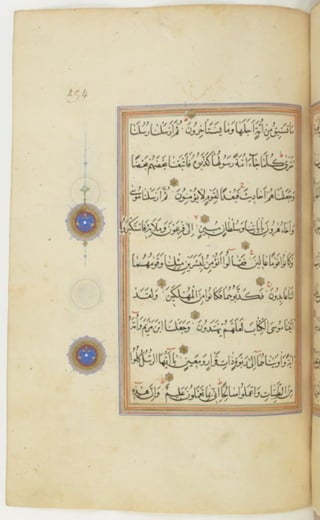 254
ما تسبق من امة اجلها وما يستاخرون ثم ارسلنا رسلنا
تترى كلما جاء امة رسولها كذبوه فاتبعنا بعضهم بعضا
وجعلناهم احاديث فبعدا لقوم لا يؤمنون ثم ارسلنا موسى
واخاه هرون باياتنا وسلطان مبين الى فرعون وملائه فاستكبروا
وكانوا قوما عالين فقالوا انؤمن لبشرين مثلنا وقومهما
لنا عابدون فكذبوهما فكانوا من المهلكين ولقد
اتينا موسى الكتاب لعلهم يهتدون وجعلنا ابن مريم وامه
اية واويناهما الى ربوة ذات قرار ومعين يا ايها الرسل كلوا
من الطيبات واعملوا صالحا اني بما تعملون عليم وان هذه